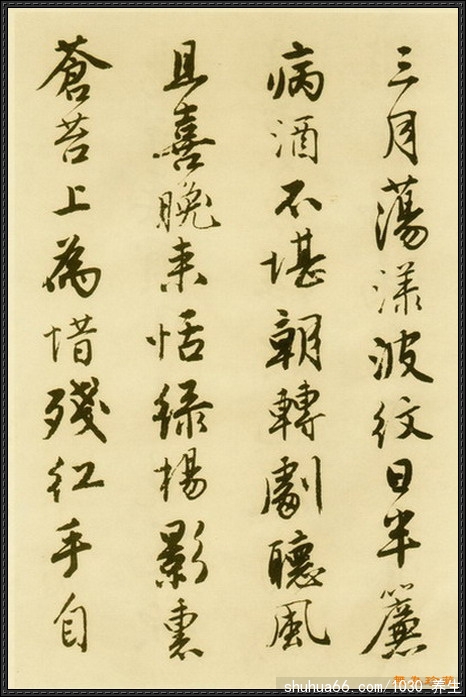 三月蕩漾波紋日半簾
病酒不堪朝轉劇聽風
且喜晚來恬綠楊影裏
蒼苔上為惜殘紅手自
shuhua66.com/1030-养生